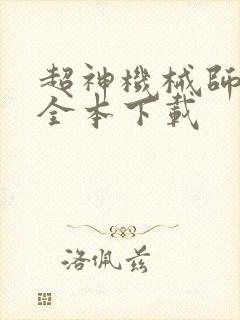 超神機械師
全本下載
洛佩兹